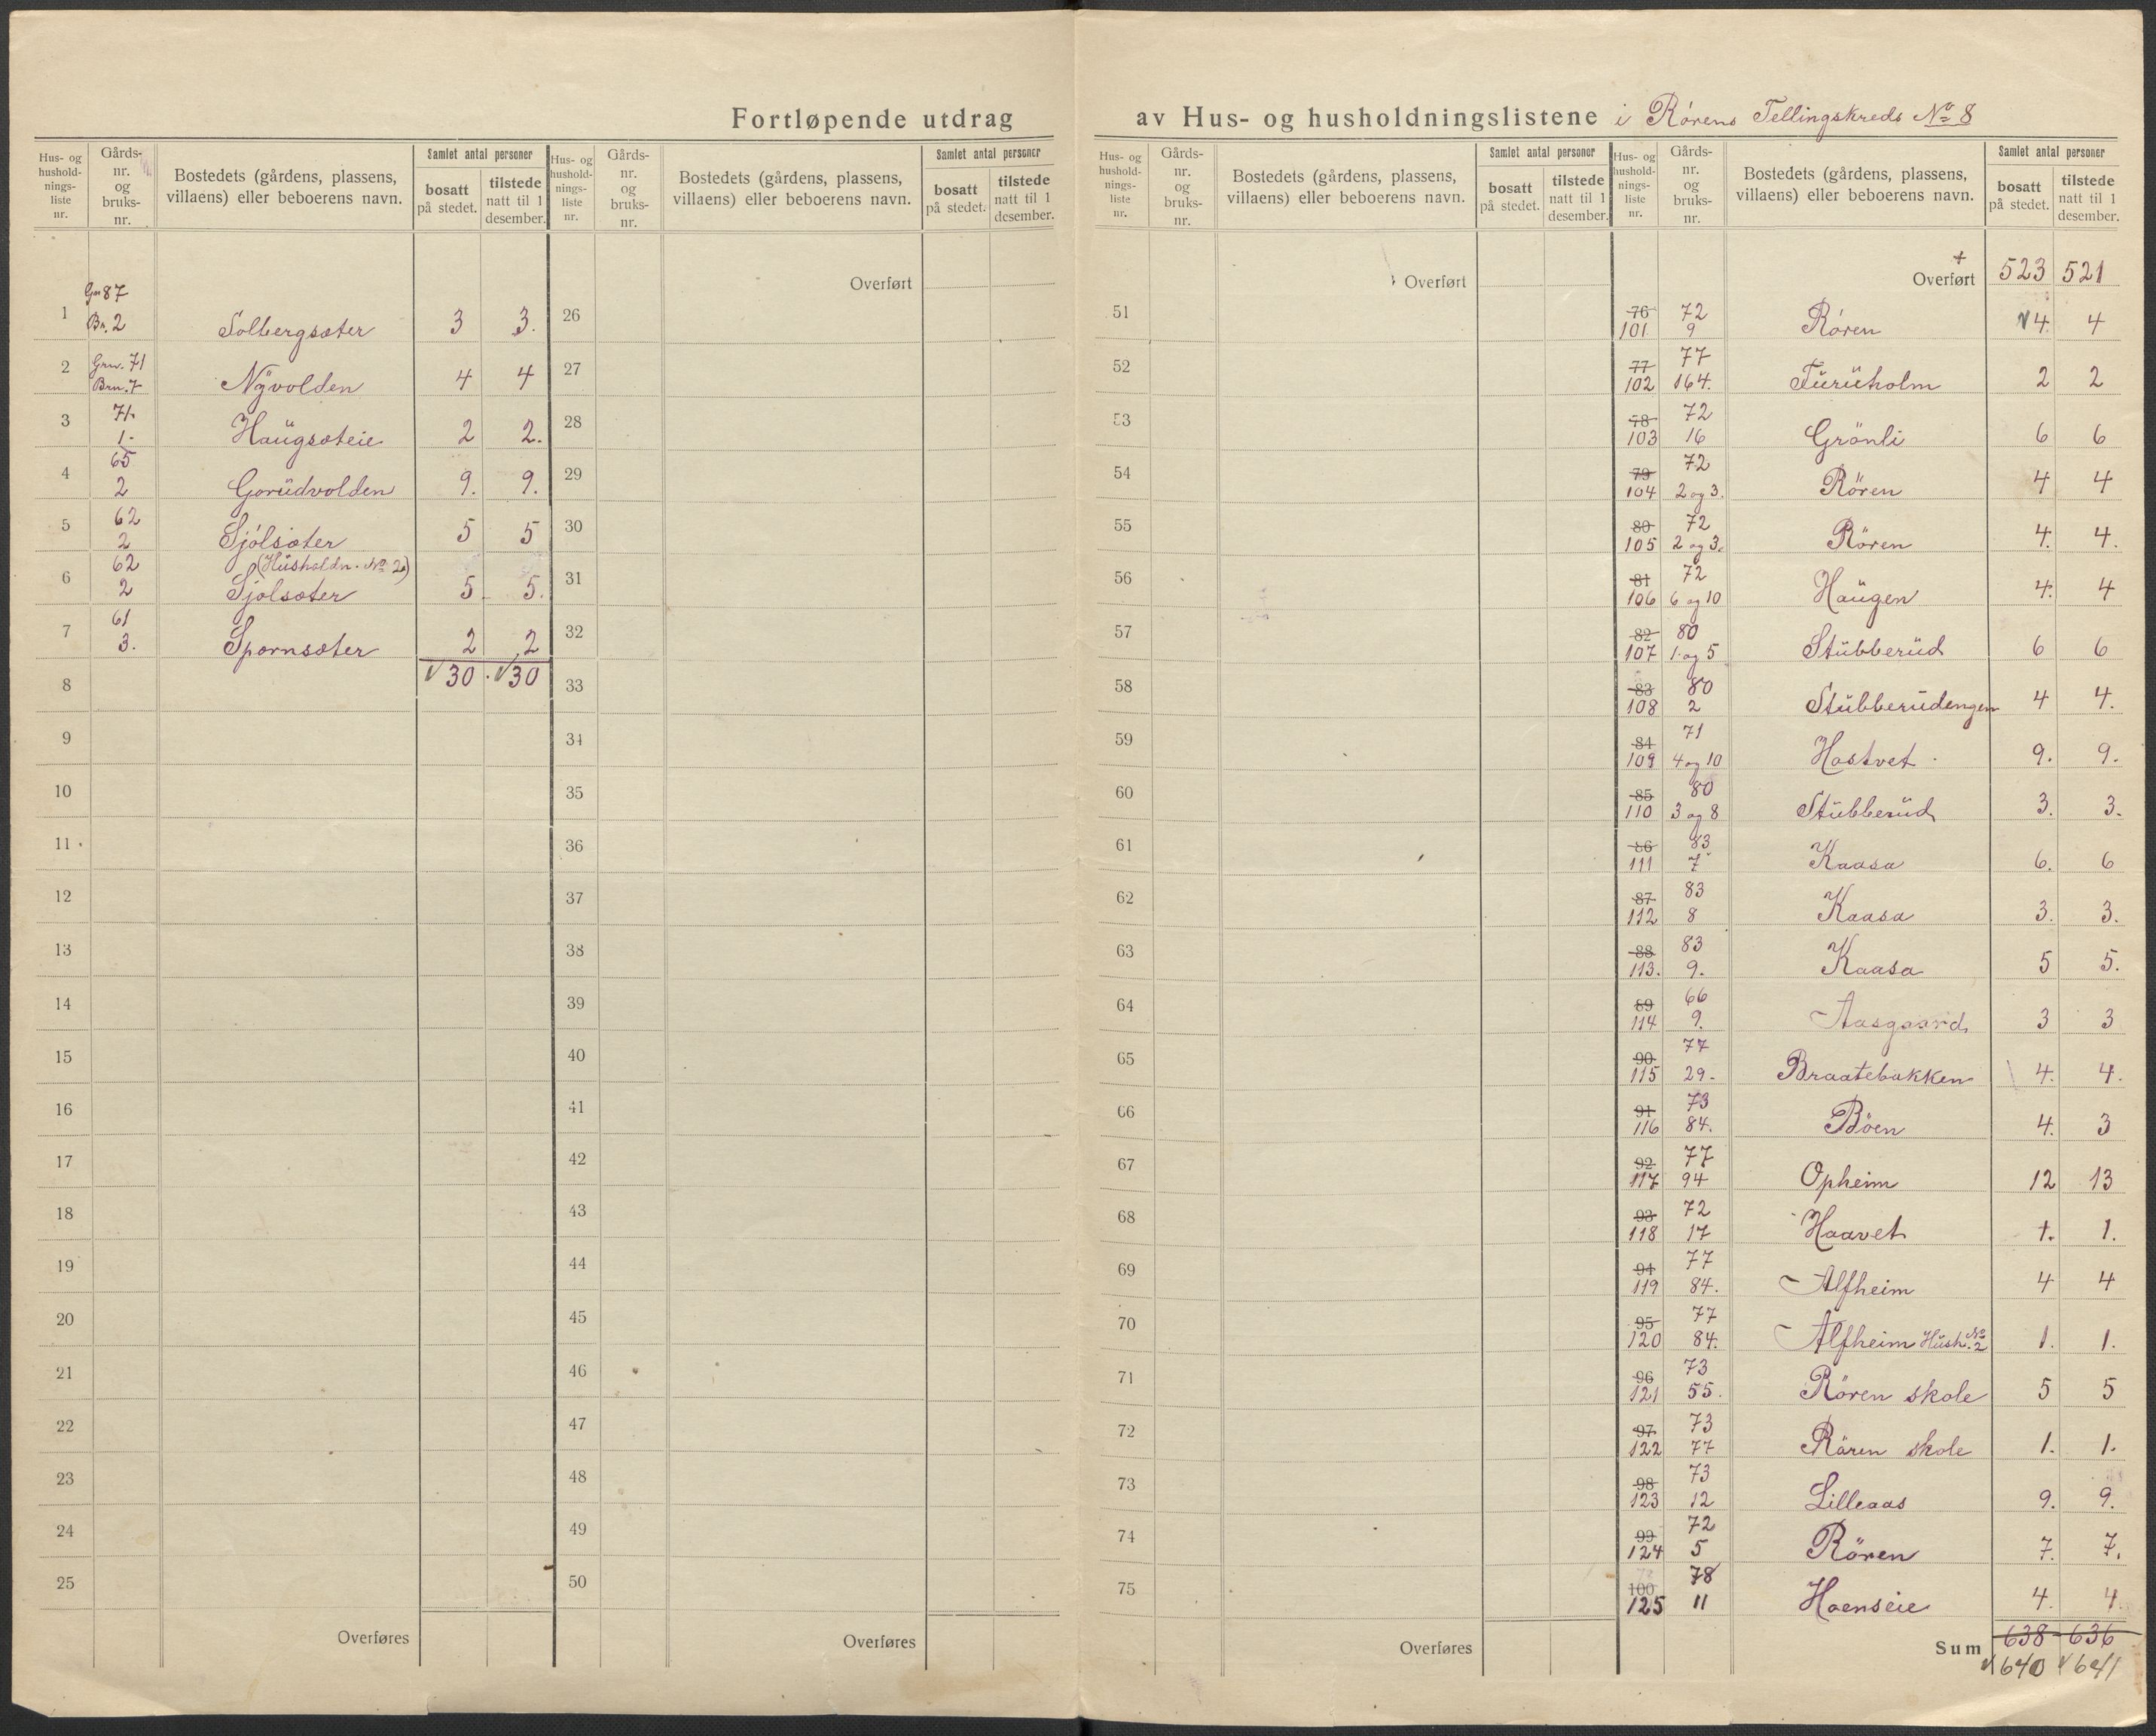 Fortløpende utdrag av Hus- og husholdningslistene i Rörens Tellingskreds No 8
Hus- og husholdnings-liste nr. | Gårds-nr. og bruks-nr. | Bostedets (gårdens, plassens, villaens) eller beboerens navn. | Samlet antal personer | bosatt på stedet. | tilstede natt til 1 desember.
1 Gn 87 Bn. 2 Solbergsæter 3 3.
2 Grn. 71 Brn. 7 Nyvolden 4 4
3 71. 1. Haugsæteie 2 2.
4 65 2 Gorudvolden 9. 9.
5 62 2 Sjölsæter 5 5
6 62 2 (Husholdn. No 2) Sjölsæter 5. 5.
7 61 3. Spornsæter 2 2
8 30 . 30
9
10
11
12
13
14
15
16
17
18
19
20
21
22
23
24
25
Overføres
Hus- og husholdnings-liste nr. | Gårds-nr. og bruks-nr. | Bostedets (gårdens, plassens, villaens) eller beboerens navn. | Samlet antal personer | bosatt på stedet. | tilstede natt til 1 desember.
Overført
26
27
28
29
30
31
32
33
34
35
36
37
38
39
40
41
42
43
44
45
46
47
48
49
50
Overføres
Hus- og husholdnings-liste nr. | Gårds-nr. og bruks-nr. | Bostedets (gårdens, plassens, villaens) eller beboerens navn. | Samlet antal personer | bosatt på stedet. | tilstede natt til 1 desember.
Overført
51
52
53
54
55
56
57
58
59
60
61
62
63
64
65
66
67
68
69
70
71
72
73
74
75
Overføres
Hus- og husholdnings-liste nr. | Gårds-nr. og bruks-nr. | Bostedets (gårdens, plassens, villaens) eller beboerens navn. | Samlet antal personer | bosatt på stedet. | tilstede natt til 1 desember.
Overført 523 521
76 101 72 9 Rören 4. 4
77 102 77 164. Furuholm 2 2
78 103 72 16 Grönli 6 6
79 104 72 2 og 3. Rören 4 4
80 105 72 2 og 3. Rören 4. 4.
81 106 72 6 og 10 Haugen 4. 4
82 107 80 1 og 5 Stubberud 6 6
83 108 80 2 Stubberudengen 4 4.
84 109 71 4 og 10 Hostvet 9. 9.
85 110 80 3 og 8 Stubberud 3. 3.
86 111 83 7 Kaasa 6. 6
87 112 83 8 Kaasa 3. 3.
88 113. 83 9. Kaasa 5 5.
89 114 66 9. Aasgaard 3 3
90 115 77 29. Braatebakken 4. 4.
91 116 73 84. Böen 4. 3
92 117 77 94 Opheim 12 13
93 118 72 17 Haavet 1. 1.
94 119 77 84. Alfheim 4 4
95 120 77 84. Alfheim Hush. No 2 1. 1.
96 121 73 55. Rören skole 5 5
97 122 73 77 Rören skole 1. 1.
98 123 73 12 Lilleaas 9. 9.
99 124 72 5 Rören 7. 7.
100 125 78 11 Hoenseie 4. 4.
Sum 638 - 636
640 641